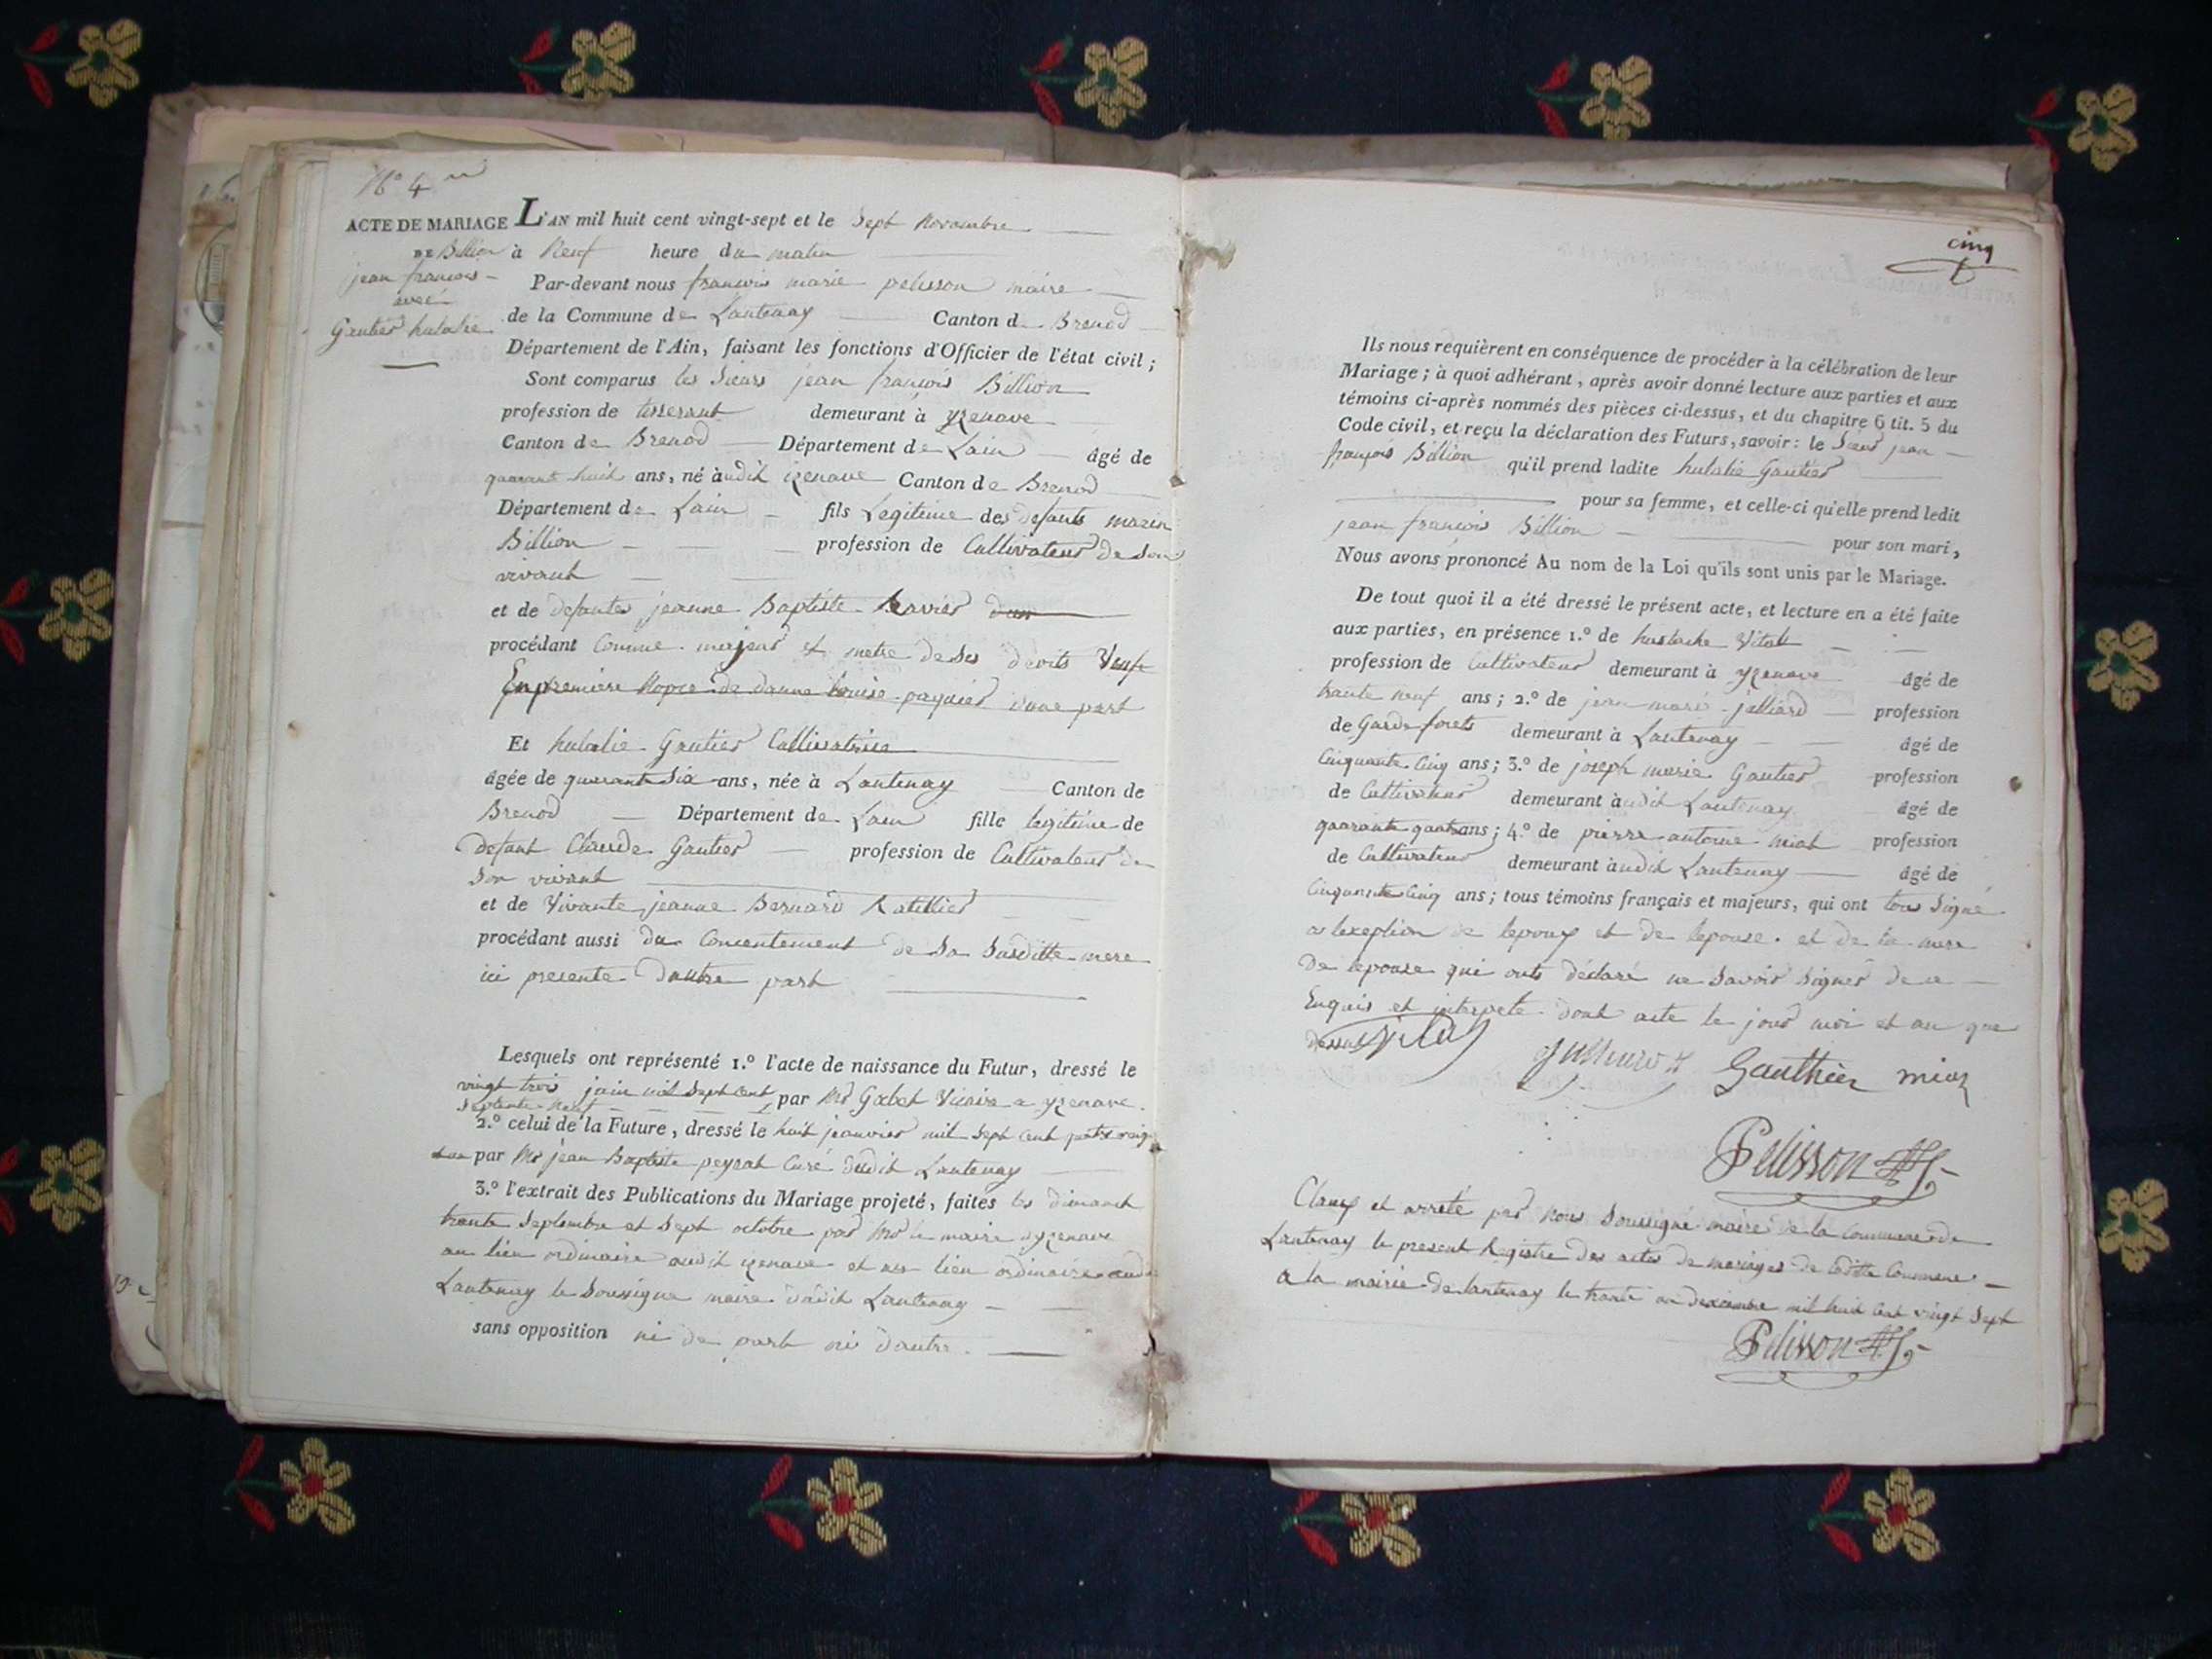 N° 4
ACTE DE MARIAGE L'AN mil huit cent vingt-sept et le Sept Novembre
DE Billion à Neuf heure du matin
jean francois
avec
Gautier hulalie
Par-devant nous francois marie pelisson maire
de la Commune de Lantenay Canton de Brenod
Département de l'Ain, faisant les fonctions d'Officier de l'état civil ;
Sont comparus les Sieurs jean francois Billion
profession de tisserant demeurant à yzenave
Canton de Brenod Département de Lain âgé de
quarant huit ans, né audit izenave Canton de Brenod
Département de Lain fils Legitime des defunts marin
Billion profession de Cultivateur de son
vivant
et de defunte jeanne Baptiste Ravier
procédant Comme majeur et metre de ses droits Veuf
En premiere Nopce de danne louise paquier d'une part
Et hulalie Gautier Cultivatrice
âgée de quarante Six ans, née à Lantenay Canton de
Brenod Département de Lain fille legitime de
defunt Claude Gautier profession de Cultivateur de
son vivant
et de Vivante jeanne Bernard Ratillier
procédant aussi du Concentement de Sa Susditte mere
ici presente dautre part
Lesquels ont représenté 1.° l'acte de naissance du Futur, dressé le
vingt trois juin mil Sept Cent par Mr Gabet Vicaire a yzenave.
Septente Neuf
2.° celui de la Future, dressé le huit jeanvier mil Sept Cent
par Mr jean Baptiste peysat Curé dudit Lantenay
3.° l'extrait des Publications du Mariage projeté, faites les dimanch
trente Septembre et Sept octobre par Mr le maire dyzenave
au lieu ordinaire audit izenave et au lieu ordinaire
Lantenay le Soussigne maire dudit Lantenay
sans opposition ni de part ni dautre.
cinq
Ils nous requièrent en conséquence de procéder à la célébration de leur
Mariage ; à quoi adhérant, après avoir donné lecture aux parties et aux
témoins ci-après nommés des pièces ci-dessus, et du chapitre 6 tit. 5 du
Code civil, et reçu la déclaration des Futurs, savoir : le Sieur jean
françois Billion qu'il prend ladite hulalie Gautier
pour sa femme, et celle-ci qu'elle prend ledit
jean francois Billion pour son mari,
Nous avons prononcé Au nom de la Loi qu'ils sont unis par le Mariage.
De tout quoi il a été dressé le présent acte, et lecture en a été faite
aux parties, en présence 1.° de hustache Vitall
profession de Cultivateur demeurant à yzenave âgé de
trante neuf ans ; 2.° de jean marie julliard profession
de Garde forets demeurant à Lantenay âgé de
Cinquante Cinq ans ; 3.° de joseph marie Gautier profession
de Cultivateur demeurant audit Lantenay âgé de
quarante ans ; 4.° de pierre antoine miat profession
de Cultivateur demeurant audit Lantenay âgé de
Cinquante Cinq ans ; tous témoins français et majeurs, qui ont tous Signé
a lexeption de lepoux et de lepouse. et de la mere
de lepouse qui onts déclaré ne Savoir Signer de ce
Enquis et dont acte le jour moi et an que
dessus
Gauthier
Pelisson
Claux et arrété par Nous Soussigné maire de la Commune de
Lantenay le present Registre des actes de mariages de laditte Commune
a la mairie de lantenay le trante un dexcembre mil huit Cent vingt Sept
Pelisson